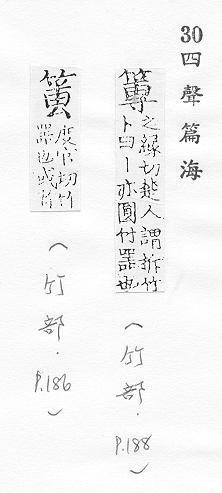 30 四聲篇海
篿 之緣切楚人謂折竹
卜曰丨亦圓竹器也
(竹部．P.188)
度官切竹
器也或作
(竹部．P.186)